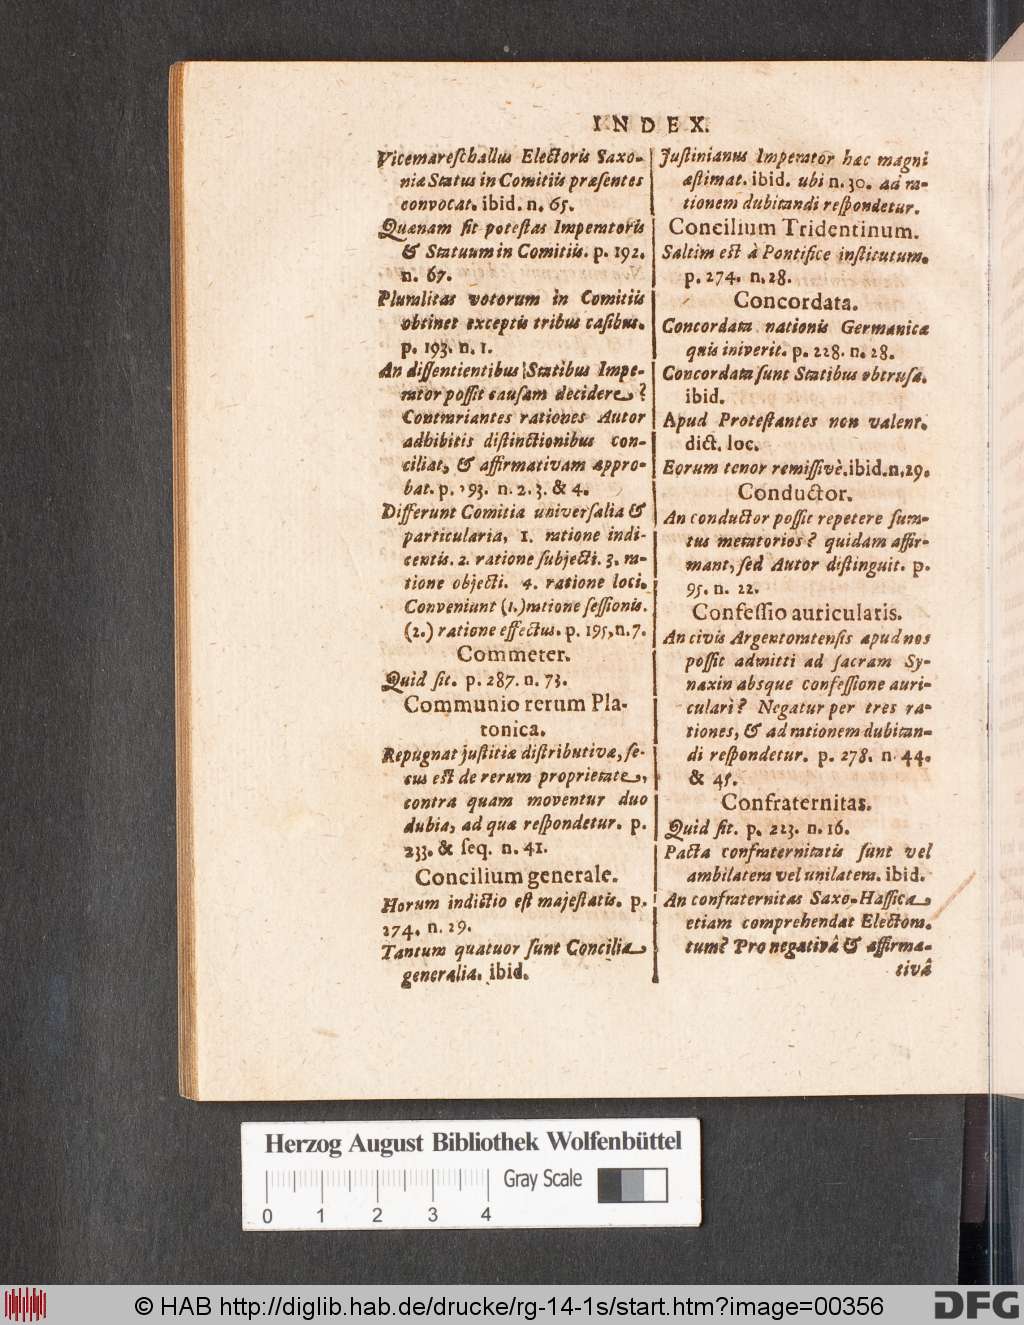 INDEX.
Vicemareſchallus Electoris Saxo-
niæ Status in Comitiis præſentes
convocat. ibid. n. 65.
Quænam ſit poteſtas Imperatoris
& Statuum in Comitiis. p. 192.
n. 67.
Pluralitas votorum in Comitiis
obtinet exceptis tribus caſibus.
p. 193. n. 1.
An diſſentientibus Statibus Impe-
rator poſſit cauſam decidere?
Contrariantes rationes Autor
adhibitis diſtinctionibus con-
ciliat, & affirmativam appro-
bat. p. 193. n. 2. 3. & 4.
Differunt Comitia univerſalia &
particularia, 1. ratione indi-
centis. 2. ratione ſubjecti. 3. ra-
tione objecti. 4. ratione loci.
Conveniunt (1.) ratione ſeſſionis.
(2.) ratione effectus. p. 195, n. 7.
Commeter.
Quid ſit. p. 287. n. 73.
Communio rerum Pla-
tonica.
Repugnat juſtitiæ diſtributivæ, ſe-
cus eſt de rerum proprietate,
contra quam moventur duo
dubia, ad quæ reſpondetur. p.
233. & ſeq. n. 41.
Concilium generale.
Horum indictio eſt majeſtatis. p.
274. n. 29.
Tantum quatuor ſunt Concilia
generalia. ibid.
Juſtinianus Imperator hæc magni
æſtimat. ibid. ubi n. 30. ad ra-
tionem dubitandi reſpondetur.
Concilium Tridentinum.
Saltim eſt à Pontifice inſtitutum.
p. 274. n. 28.
Concordata.
Concordata nationis Germanicæ
quis iniverit. p. 228. n. 28.
Concordata ſunt Statibus obtruſa.
ibid.
Apud Proteſtantes non valent.
dict. loc.
Eorum tenor remiſſivè. ibid. n. 29.
Conductor.
An conductor poſſit repetere ſum-
tus metatorios? quidam affir-
mant, ſed Autor diſtinguit. p.
95. n. 22.
Confeſſio auricularis.
An civis Argentoratenſis apud nos
poſſit admitti ad ſacram Sy-
naxin absque confeſſione auri-
culari? Negatur per tres ra-
tiones, & ad rationem dubitan-
di reſpondetur. p. 278. n. 44.
& 45.
Confraternitas.
Quid ſit. p. 223. n. 16.
Pacta confraternitatis ſunt vel
ambilatera vel unilatera. ibid.
An confraternitas Saxo-Haſſica
etiam comprehendat Electora-
tum? Pro negativâ & affirma-
tivâ
Herzog August Bibliothek Wolfenbüttel
Gray Scale
0 1 2 3 4
© HAB http://diglib.hab.de/drucke/rg-14-1s/start.htm?image=00356
DFG